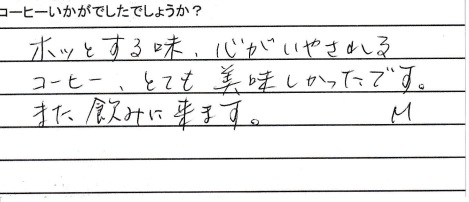 コーヒーいかがでしたでしょうか?
ホッとする味、心がいやされる
コーヒー、とても美味しかったです。
また飲みに来ます。 M